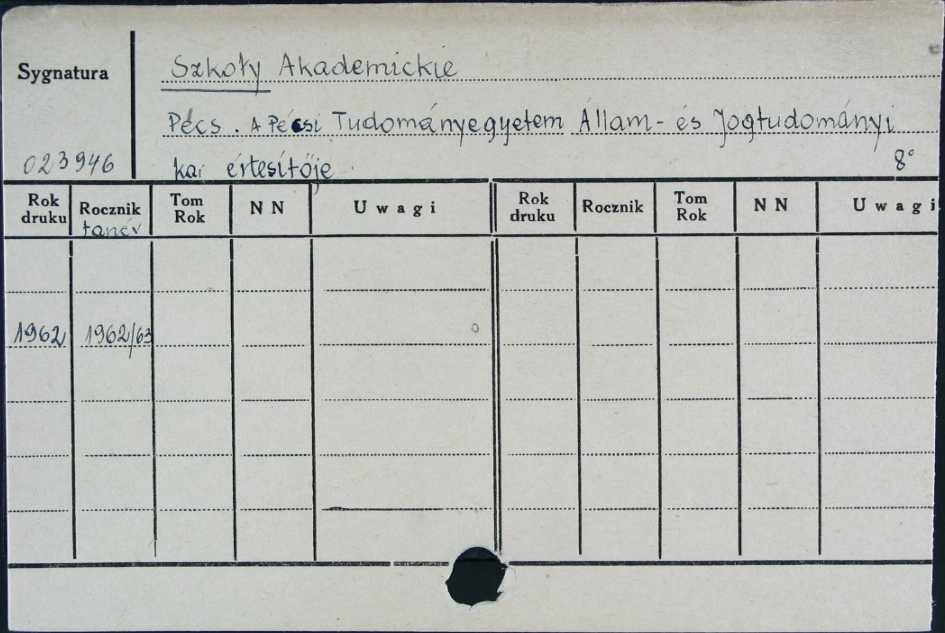 Sygnatura
Szkoły Akademickie
Pécs. A Pécsi Tudományegyetem Állam- és Jogtudományi
023946
kai értesítője
8°
Rok druku Rocznik Tom Rok NN Uwagi Rok druku Rocznik Tom Rok NN Uwagi
tanév
1962 1962/63